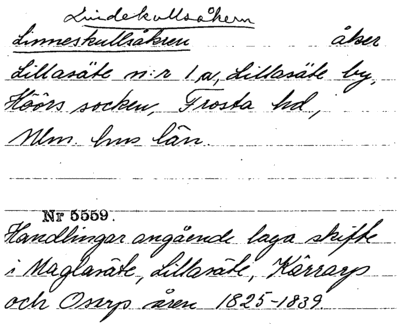 Lindekullsåkern
Linneskullsåkren åker
Lillasäte n:r 1 a, Lillasäte by,
Höörs socken, Frosta hd,
Mlm. hus län.
Nr 5559.
Handlingar angående laga skifte
i Maglasäte, Lillasäte, Kärrarp
och Oserp åren 1825-1839